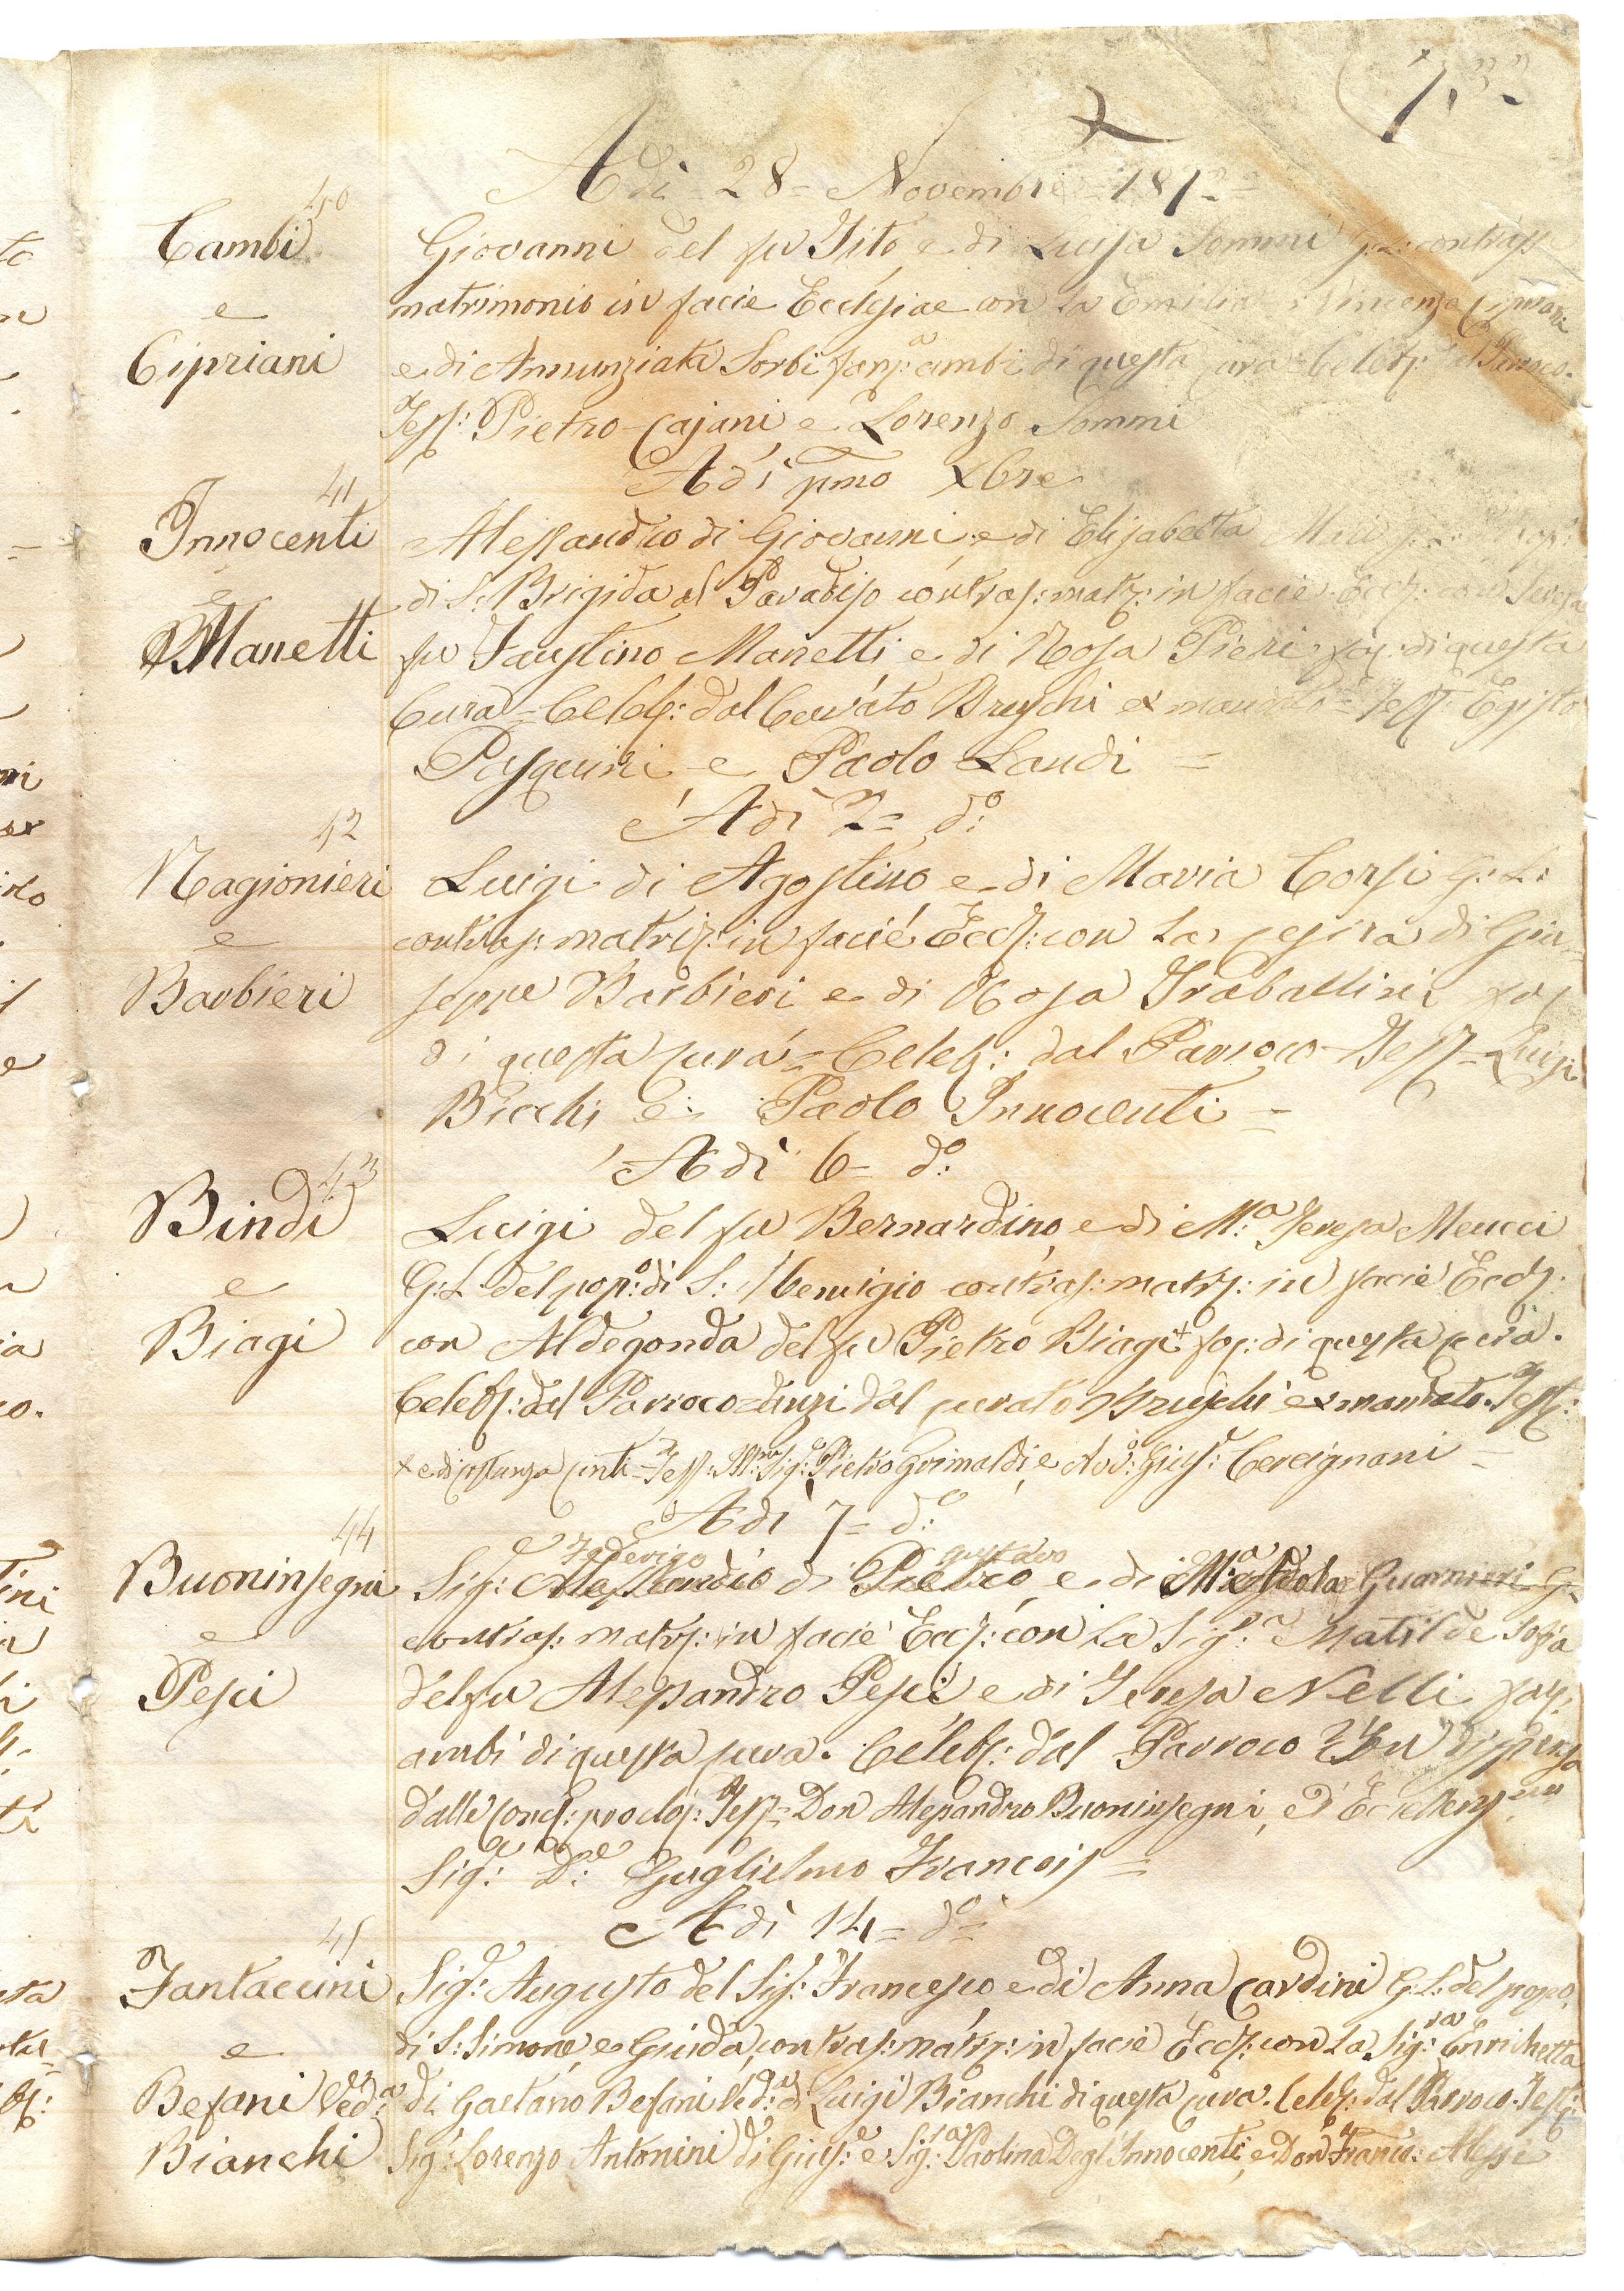 Adì 28= Novembre = 187
40
Cambi
e
Cipriani
Giovanni del fu Tito e di Luisa Sommi G: L: contrass
matrimonio in facie Ecclesiae con la Emilia Vincenzo Cipriani
e di Annunziata Sorbi fan:ª ambi di questa Cura = Celeb: Parroco.
Test: Pietro Cajani e Lorenzo Sommi
Adì pmo Xbre
41
Innocenti
e
Manetti
Alessandro di Giovanni e di Elisabetta
di S: Brigida al Paradiso contras: matr: in facie Eccl: con Teresa
fu Faustino Manetti e di Rosa Pieri fan: di questa
Cura = Celeb: dal Curato Bruschi ex mandato = Test: Egisto
Pasquini e Paolo Landi =
Adì 2= dº:
42
Ragionieri
e
Barbieri
Luigi di Agostino e di Maria Corsi G: L:
contras: matri: in facie Eccl: con la Cesira di Giu=
seppe Barbieri e di Rosa Traballini fan
di questa Cura = Celeb: dal Parroco Test = Luigi
Bicchi e Paolo Innocenti =
Adì 6= dº:
43
Bindi
e
Biagi
Luigi del fu Bernardino e di M:ª Teresa Meucci
G: L: del popº: di S: Remigio contras: matr: in facie Eccl:
con Aldegonda del fu Pietro Biagi + fan: di questa Cura.
Celeb: dal Parroco = anzi dal Curato Bruschi ex mandato. Test:
+ e di Costanza Conti = Test: Ill:mo Sig:e Pietro Grimaldi e Avvº: Gius:e Cercignani =
Adì 7= dº:
44
Buoninsegni
e
Pesci
Federigo gustavo
Sig:e Alessandro di Pietro e di M:ª Adola Guarnieri G:
contras: matr: in facie Eccl: con la Sig:ª Matilde Sofia
del fu Alessandro Pesci e di Teresa Nelli fan:
ambi di questa Cura. Celeb: dal Parroco con dispensa
dalle Cons: proclas: Test = Don Alessandro Buoninsegni, e l'Eccellens:mo
Sig:e D:e Guglielmo Francois =
Adì 14= dº:
45
Fantaccini
e
Befani Ved:ª
Bianchi
Sig:e Augusto del Sig:e Francesco e di Anna Cardini G: L: del popº.
di S: Simone e Giuda, contras: matr: in facie Eccl: con la Sig:ra Enrichetta
di Gaetano Befani Ved:ª di Luigi Bianchi di questa Cura. Celeb: dal Parroco. Test:
Sig:e Lorenzo Antonini di Gius:e e Sig:ra Paolina Degl'Innocenti, e Don Franc:º Alessi